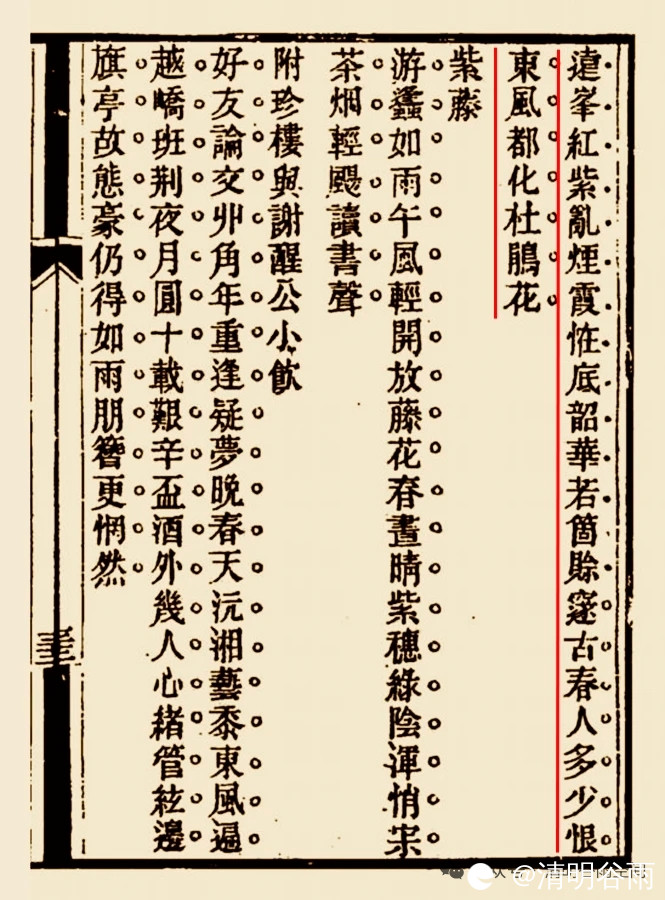 遠峯紅紫亂煙霞恠底韶華若箇賒邃古春人多少恨
東風都化杜鵑花
紫藤
游蠭如雨午風輕開放藤花春晝晴紫穗綠陰渾悄宋
茶烟輕颺讀書聲
附珍樓與謝醒公小飲
好友論交丱角年重逢疑夢晚春天沅湘藝黍東風遍
越嶠班荆夜月圓十載艱辛盃酒外幾人心緒管絃邊
旗亭故態豪仍得如雨朋簪更惘然
@清明谷雨